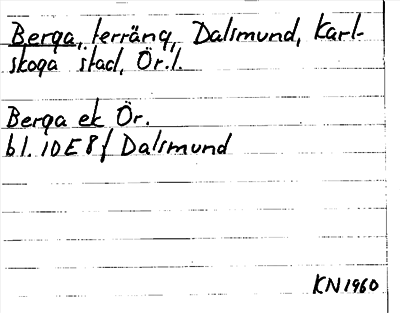 Berga, terräng, Dalsmund, Karl-
skoga stad, Ör.l.
Berga ek Ör.
bl. 10E8f Dalsmund
KN1960